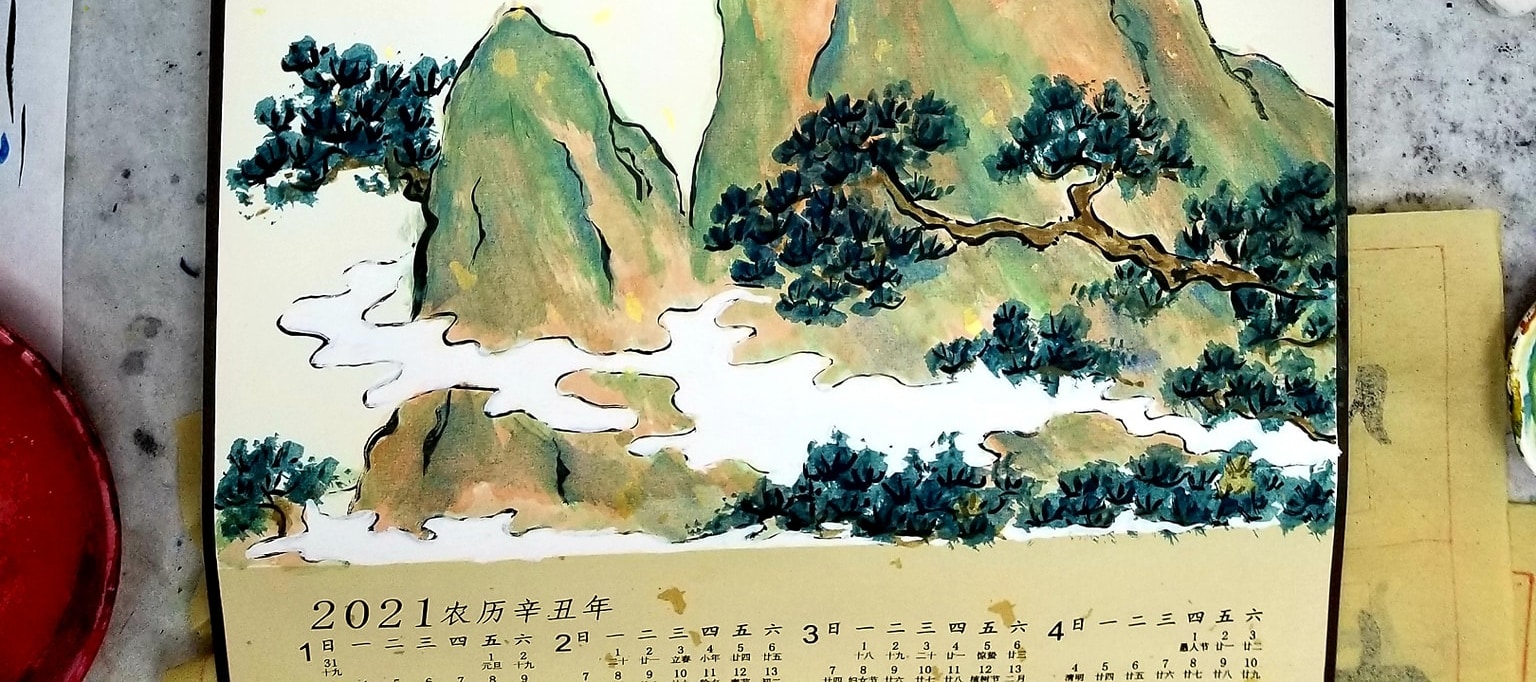 2021农历辛丑年
1 日 一 二 三 四 五 六
2 日 一 二 三 四 五 六
3 日 一 二 三 四 五 六
4 日 一 二 三 四 五 六
31 1 2
十九 元旦 十九
1 2 3 4 5 6
二十 廿一 立春 小年 廿四 廿五
1 2 3 4 5 6
十八 十九 二十 廿一 惊蛰 廿三
1 2 3
愚人节 廿一 廿二
7 8 9 10 11 12 13
7 8 9 10 11 12 13
廿四 妇女节 廿六 廿七 廿八 植树节 二月
4 5 6 7 8 9 10
清明 廿四 廿五 廿六 廿七 廿八 廿九